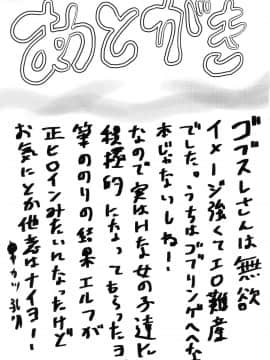 あとがき
ゴブスレさんは無欲
イメージ強くてエロ難産
でした。うちはゴブリンゲヘヘな
本じゃないしねー
なので実はHな女の子達に
積極的になってもらったョ
筆ののりの結果エルフが
正ヒロインみたいんなったけど
お気にとか他意はナイヨー!